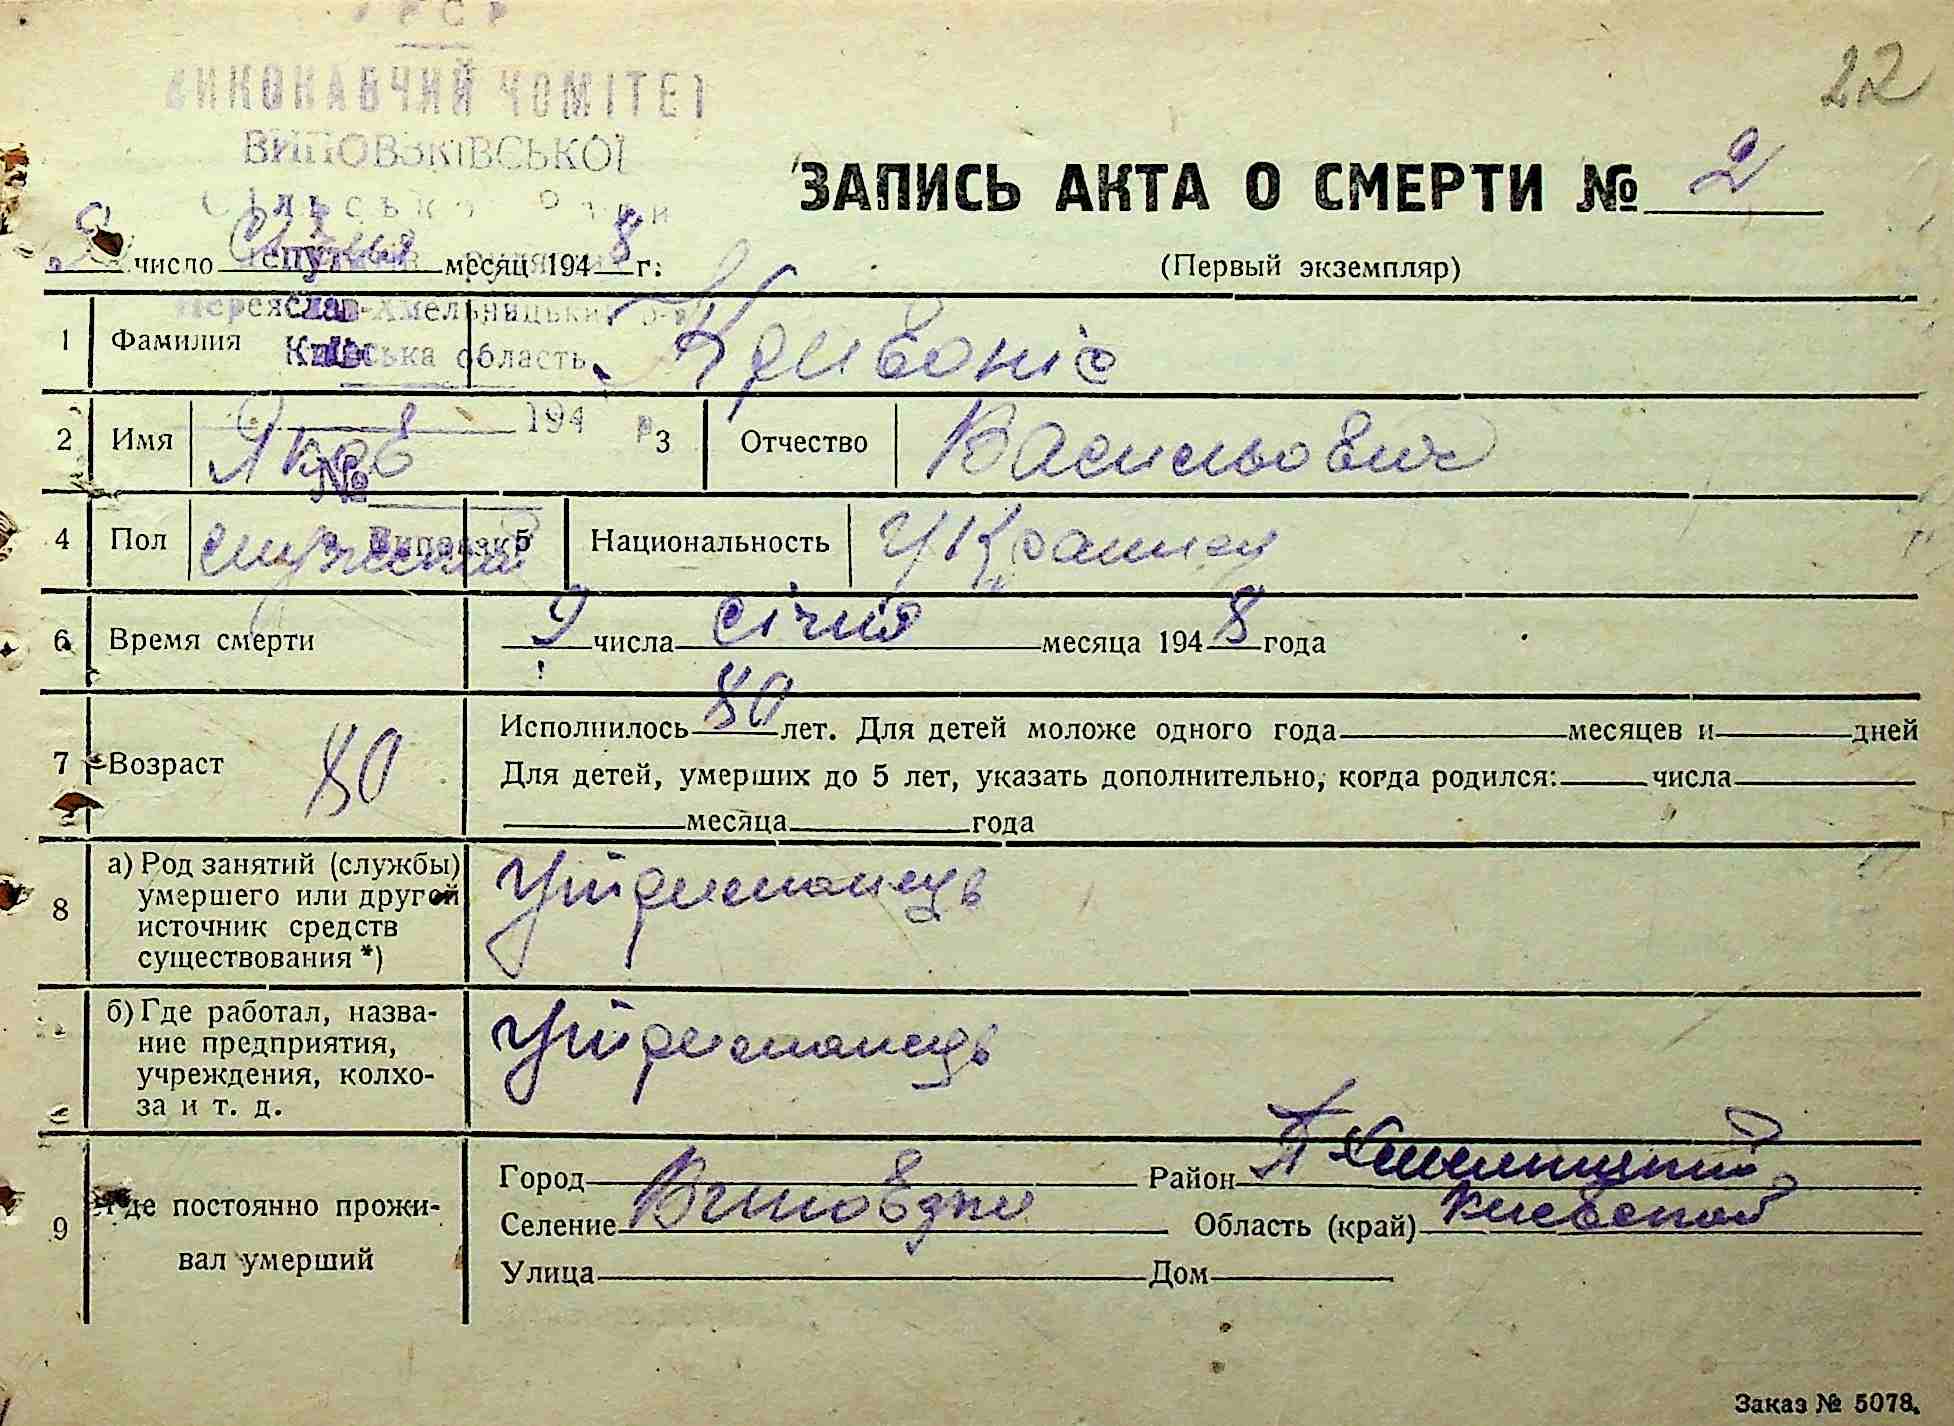 УРСР
22
ВИКОНАВЧИЙ КОМІТЕТ
ВИПОВЗКІВСЬКОЇ
Сільської Ради
ЗАПИСЬ АКТА О СМЕРТИ № 2
9 число Січня месяц 1948 г.
(Первый экземпляр)
Переяслав-Хмельницький р-н
Київська область
1 Фамилия Кривоніс
194 р
№
2 Имя Яков 3 Отчество Васильович
Виповзки
4 Пол мужский 5 Национальность Украинец
6 Время смерти 9 числа січня месяца 1948 года
7 Возраст 80 Исполнилось 80 лет. Для детей моложе одного года месяцев и дней
Для детей, умерших до 5 лет, указать дополнительно, когда родился: числа
месяца года
8 а) Род занятий (службы) умершего или другой источник средств существования *) Утриманець
б) Где работал, название предприятия, учреждения, колхоза и т. д. Утриманець
9 Где постоянно проживал умерший
Город Район П Хмельницкий
Селение Виповзки Область (край) Киевской
Улица Дом
Заказ № 5078.